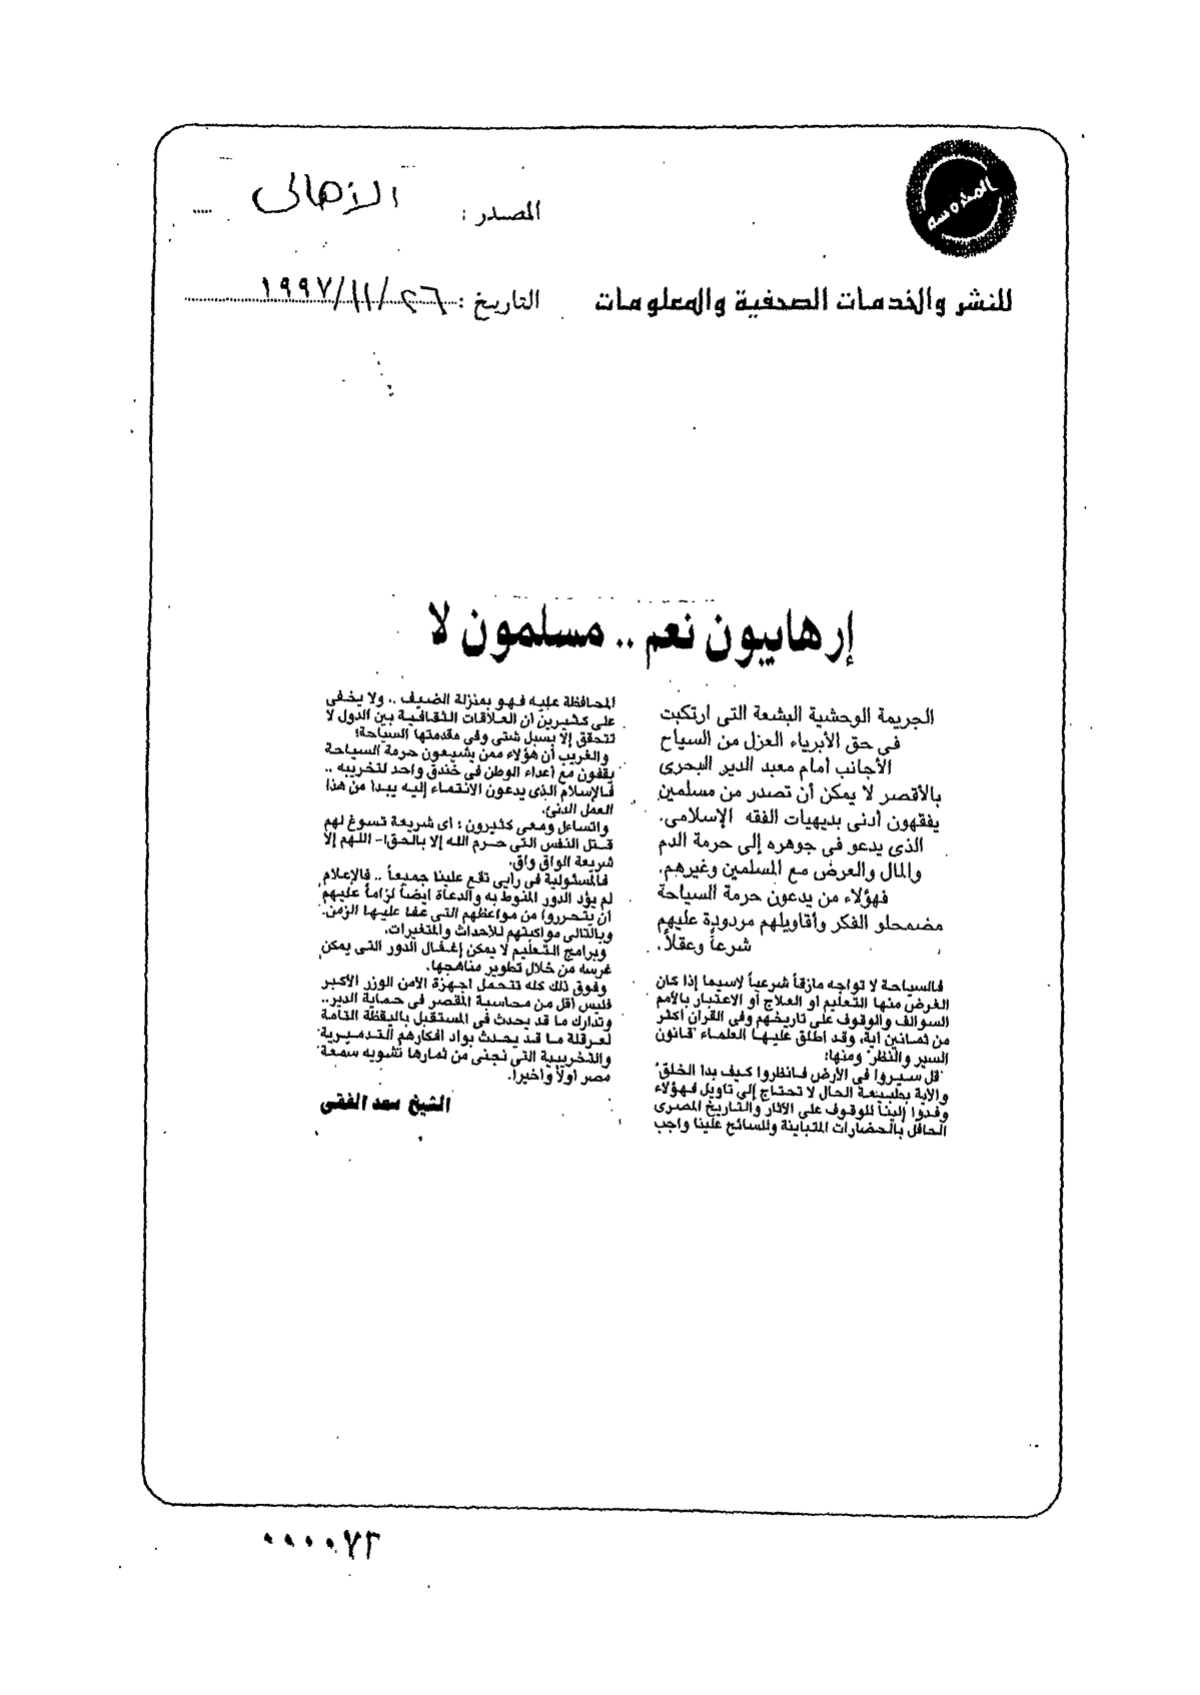 المحروسة
المصدر : الأهالى
للنشر والخدمات الصحفية والمعلومات
التاريخ : ٢٦/١١/١٩٩٧
إرهابيون نعم .. مسلمون لا
الجريمة الوحشية البشعة التى ارتكبت
فى حق الأبرياء العزل من السياح
الأجانب أمام معبد الدير البحرى
بالأقصر لا يمكن أن تصدر من مسلمين
يفقهون أدنى بديهيات الفقه الإسلامى.
الذى يدعو فى جوهره إلى حرمة الدم
والمال والعرض مع المسلمين وغيرهم.
فهؤلاء من يدعون حرمة السياحة
مضمحلو الفكر وأقاويلهم مردودة عليهم
شرعاً وعقلاً.
فالسياحة لا تواجه مازقاً شرعياً لاسيما إذا كان
الغرض منها التعليم او العلاج أو الاعتبار بالأمم
السوالف والوقوف على تاريخهم وفى القرآن أكثر
من ثمانين آية، وقد اطلق عليها العلماء "قانون
السير والنظر" ومنها؛
"قل سيروا فى الأرض فانظروا كيف بدا الخلق"
والآية بطبيعة الحال لا تحتاج إلى تاويل فهؤلاء
وفدوا إلينا للوقوف على الآثار والتاريخ المصرى
الحافل بالحضارات المتباينة وللسائح علينا واجب
المحافظة عليه فهو بمنزلة الضيف .. ولا يخفى
على كثيرين ان العلاقات الثقافية بين الدول لا
تتحقق إلا بسبل شتى وفى مقدمتها السياحة؛
والغريب أن هؤلاء ممن يشيعون حرمة السياحة
يقفون مع أعداء الوطن فى خندق واحد لتخريبه ..
فالإسلام الذى يدعون الانتماء إليه يبدا من هذا
العمل الدنئ.
واتساءل ومعى كثيرون ؛ اى شريعة تسوغ لهم
قتل النفس التى حرم الله إلا بالحق!- اللهم إلا
شريعة الواق واق.
فالمسئولية فى رايى تقع علينا جميعاً .. فالإعلام
لم يؤد الدور المنوط به والدعاة ايضاً لزاماً عليهم
ان يتحرروا من مواعظهم التى عفا عليها الزمن.
وبالتالى مواكبتهم للأحداث والمتغيرات.
وبرامج التعليم لا يمكن إغفال الدور التى يمكن
غرسه من خلال تطوير مناهجها.
وفوق ذلك كله تتحمل اجهزة الامن الوزر الأكبر
فليس أقل من محاسبة المقصر فى حماية الدير..
وتدارك ما قد يحدث فى المستقبل باليقظة التامة
لعرقلة ما قد يحدث بواد افكارهم التدميرية
والتخريبية التى نجنى من ثمارها تشويه سمعة
مصر أولاً وأخيراً.
الشيخ سعد الفقى
٠٠٠٠٧٢